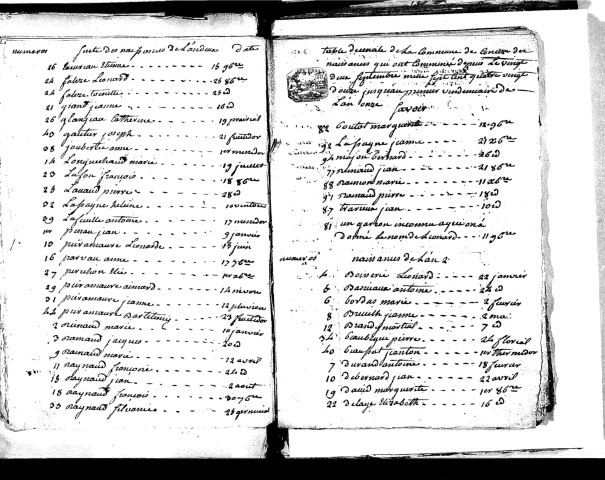 numeros suite des naissances de L'andeux date
26 Leonard Etienne 15 9bre
24 faleze Leonard 28 8bre
24 faleze toinette 25 id
21 jeanne 16 id
26 glangeau Catherine 19 prairial
40 gautier joseph 21 fructidor
38 joubertie anne 1er messidor
14 Longuechaud marie 19 juillet
23 Lafon françois 18 8bre
25 Lavaud pierre 28 id
32 Lapayne helene 10 ventose
39 Lafeuille antoine 17 messidor
1er jean 9 janvier
10 puramaure Leonarde 15 juin
16 parvau anne 17 7bre
27 peruchon Elie 1er xbre
29 puramaure aimard 14 nivou
31 puramaure jeanne 12 pluviou
44 puramaure Bartelemy 23 fructidor
2 Renaud marie 10 janvier
3 Ramaud jacques 20 id
9 Ramaud marie 12 avril
11 Raynaud françoise 24 id
13 Raynaud jean 2 aout
18 Raynaud françois 30 7bre
33 Raynaud Silvaine 28 germinal
table decenale de la Commune de Conezac des
naissances qui ont Commencé depuis Le vingt
deux septembre mille sept cent quatre vingt
douze jusquau premier vendemiaire de
L'an onze
Savoir
82 Coutot marguerite 12 9bre
92 Lapayne jeanne 27 xbre
94 majou bernard 26 id
77 Renaud jean 21 8bre
88 Ramon marie 11 xbre
91 Ramaud pierre 18 id
87 travieux jean 10 id
81 un garçon inconnu a qui on a
donné le nom de Leonard 11 9bre
numeros naissances de L'an 2
4 Boisserie Leonard 22 janvier
5 antoine 24 id
6 Bordas marie 2 fevrier
8 Breuilh jeanne 2 mai
12 Brand martial 7 id
34 Beaublque pierre 24 floreal
40 Beausse janton 1er thermidor
7 Durand antoine 18 fevrier
10 Debernard jean 22 avril
19 David marguerite 1er 8bre
22 Delaye Elizabeth 16 id